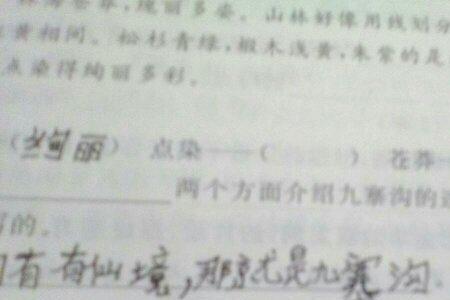 海苍莽,绚丽多姿。山林好像用线划分
黄相间。松杉青绿,椴木浅黄,朱紫的是
点染得绚丽多彩。
(绚丽) 点染——( ) 苍莽—
两个方面介绍九寨沟的
的。
有仙境,那就是九寨沟.